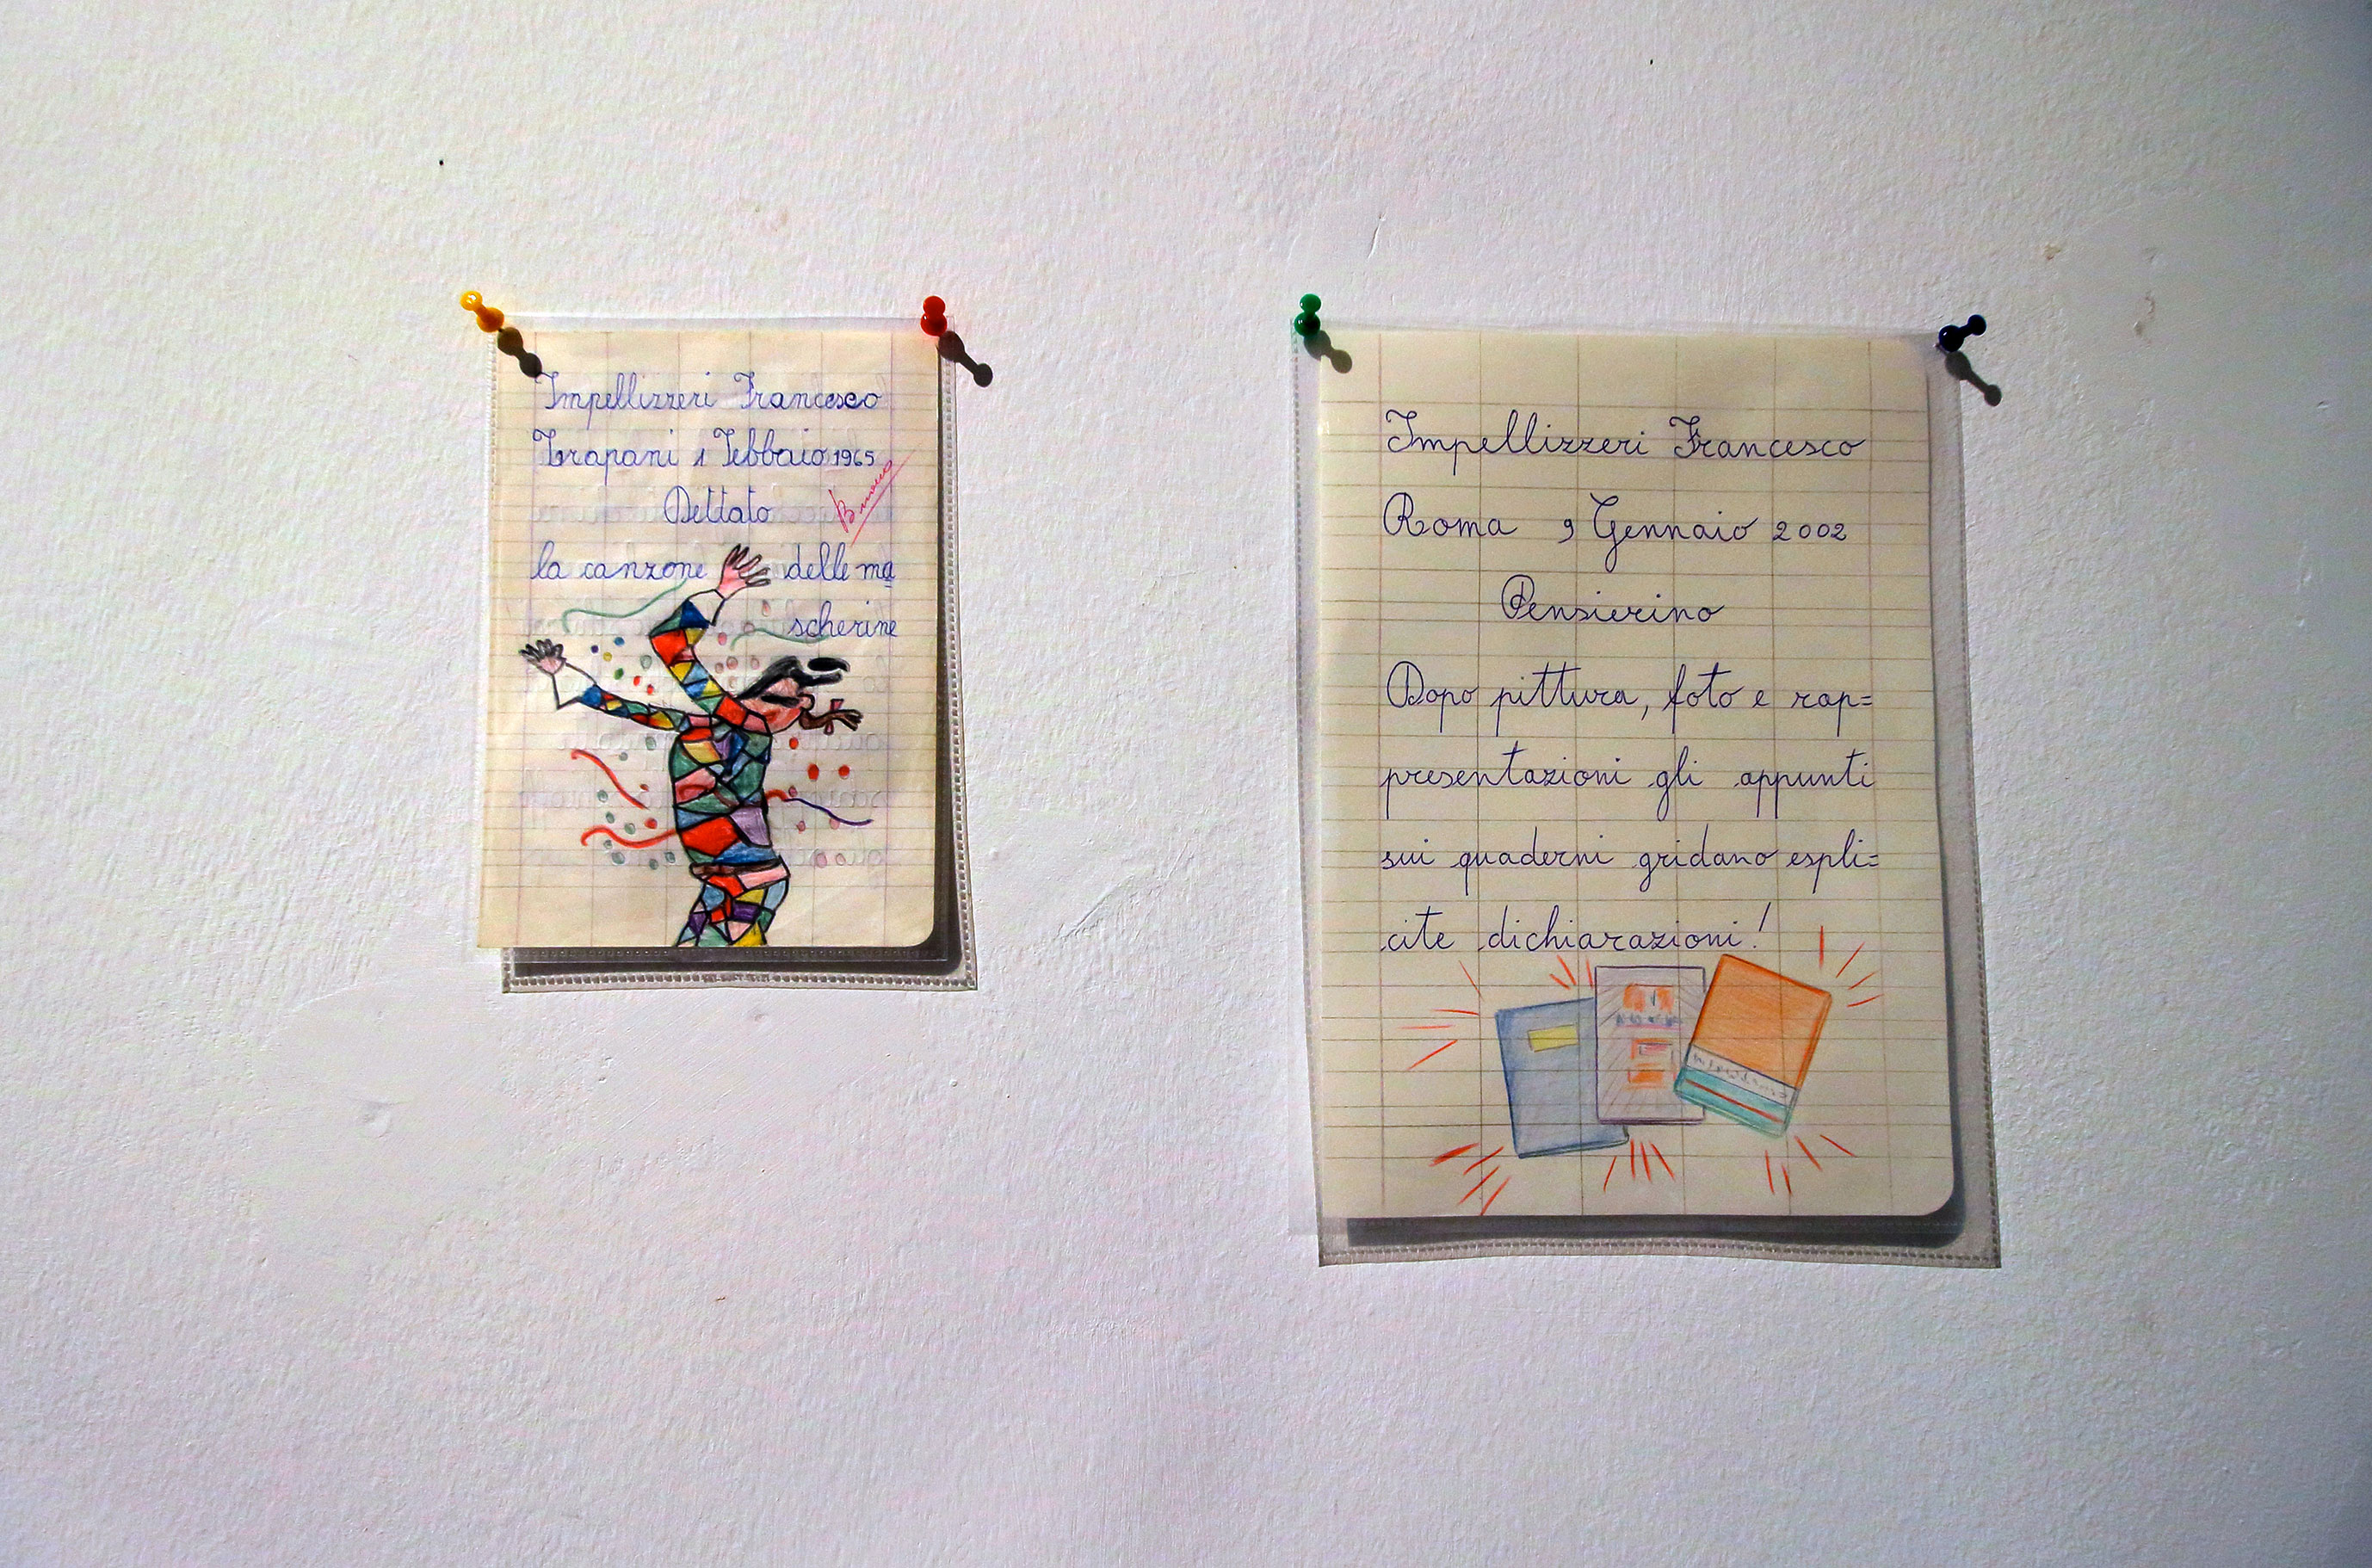 Impellizzeri Francesco
Trapani 1 Febbraio 1965
Dettato
Buono
la canzone delle ma
scherine
Impellizzeri Francesco
Roma 9 Gennaio 2002
Pensierino
Dopo pittura, foto e rap=
presentazioni gli appunti
sui quaderni gridano espli=
cite dichiarazioni!